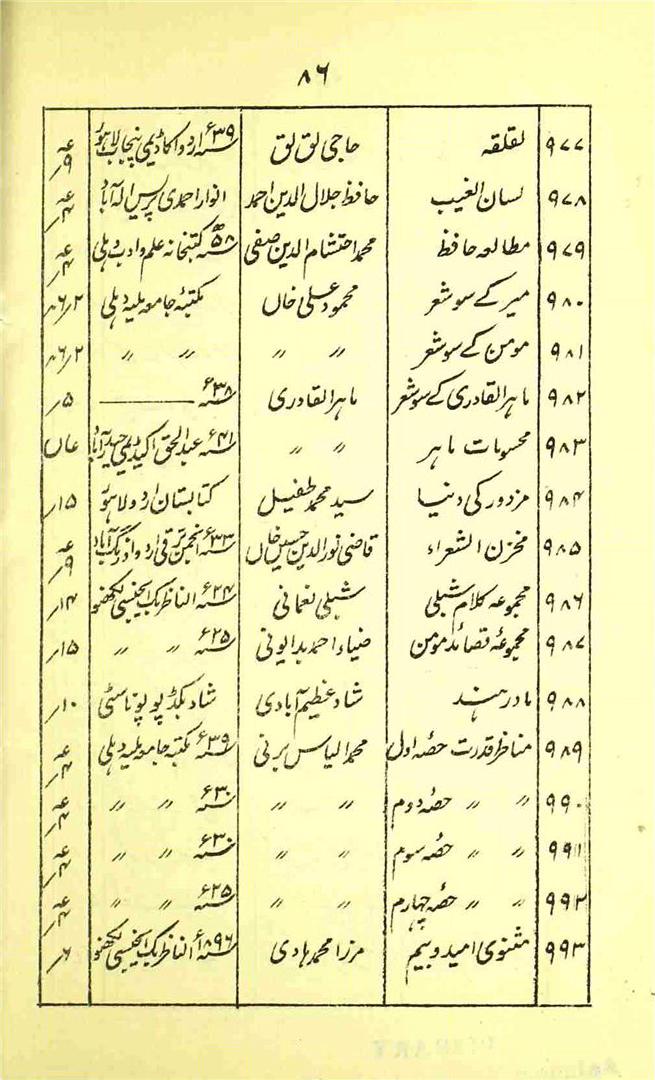 ۸۶
۹۷۷ لقلقہ حاجی لق لق ۳۹ء اردو اکاڈیمی پنجاب لاہور
۹۷۸ لسان الغیب حافظ جلال الدین احمد انوار احمدی پریس الہ آباد
۹۷۹ مطالعہ حافظ محمد احتشام الدین صفی ۵۸ھ کتبخانہ علم و ادب دہلی
۹۸۰ میر کے سو شعر محمود علی خاں مکتبہ جامعہ ملیہ دہلی ۶/۲
۹۸۱ مومن کے سو شعر 〃 〃 〃 〃 ۶/۲
۹۸۲ ماہر القادری کے سو شعر ماہر القادری ۳۸ء ——— ۵ر
۹۸۳ محسوسات ماہر 〃 〃 ۴۱ء عبدالحق اکیڈیمی حیدرآباد
۹۸۴ مزدور کی دنیا سید محمد طفیل کتابستان اردو لاہور ۱۵ر
۹۸۵ مخزن الشعراء قاضی نور الدین حسین خاں ۳۳ء انجمن ترقی اردو اورنگ آباد
۹۸۶ مجموعہ کلام شبلی شبلی نعمانی ۲۴ء الناظر بک ایجنسی لکھنو ۱۴ر
۹۸۷ مجموعہ قصائد مومن ضیاء احمد بدایونی ۲۵ء 〃 〃 ۱۵ر
۹۸۸ مادر ہند شاد عظیم آبادی شاد بکڈپو پوناسٹی ۱۰ر
۹۸۹ مناظر قدرت حصہ اول محمد الیاس برنی ۳۹ء مکتبہ جامعہ ملیہ دہلی
۹۹۰ 〃 〃 حصہ دوم 〃 〃 ۳۰ء 〃 〃
۹۹۱ 〃 〃 حصہ سوم 〃 〃 ۳۰ء 〃 〃
۹۹۲ 〃 〃 حصہ چہارم 〃 〃 ۲۵ء 〃 〃
۹۹۳ مثنوی امید و بیم مرزا محمد ہادی ۱۸۹۶ء الناظر بک ایجنسی لکھنو ۶ر